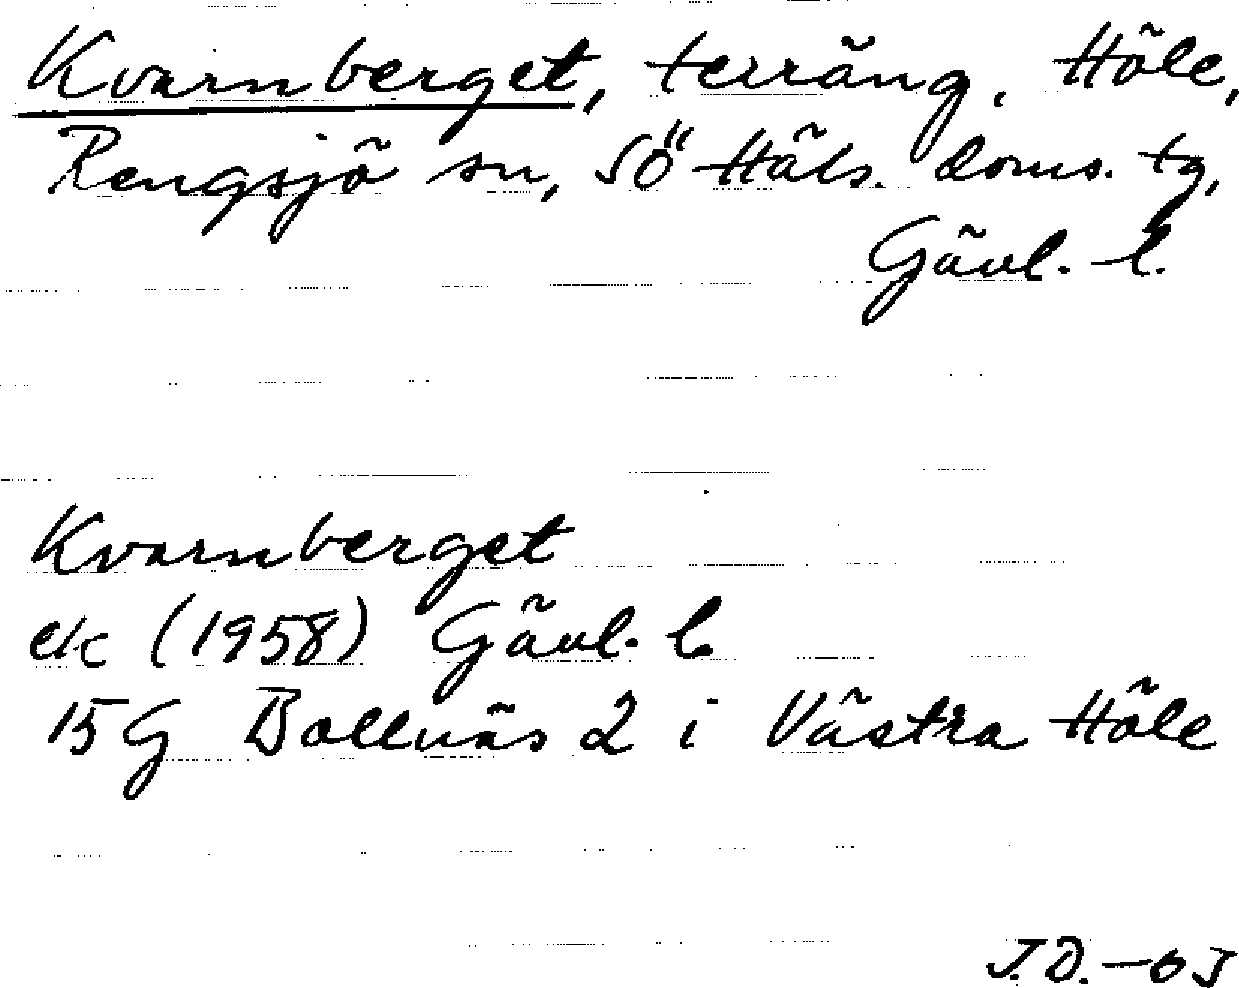 Kvarnberget, terräng, Höle,
Rengsjö sn, SÖ Häls. doms. tg,
Gävl. l.
Kvarnberget
ek (1958) Gävl. l.
15G Bollnäs 2 i Västra Höle
J.D.-03